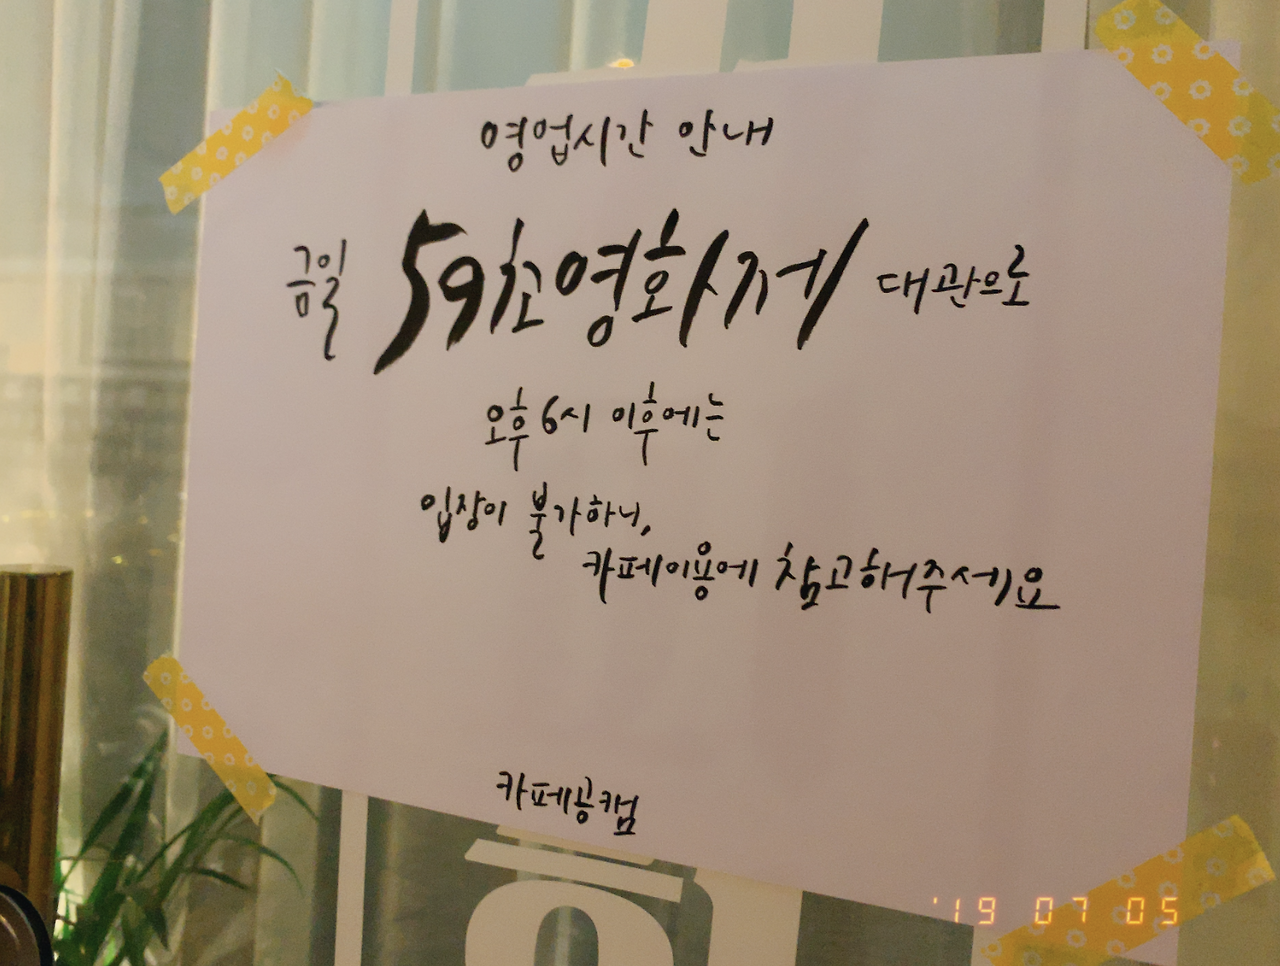 영업시간 안내
금일 59초영화제 대관으로
오후 6시 이후에는
입장이 불가하니,
카페이용에 참고해주세요
카페공캠
'19 07 05